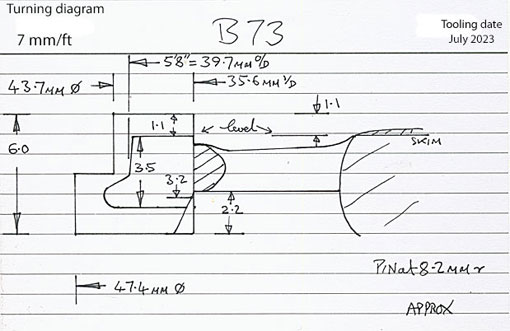 Turning diagram
Tooling date
7 mm/ft
B73
July 2023
5'8" = 39.7mm O/D
43.7mm Ø
35.6mm I/D
1.1
1.1
level
6.0
SKIM
3.5
3.2
2.2
PIN at 8.2mm r
47.4mm Ø
APPROX